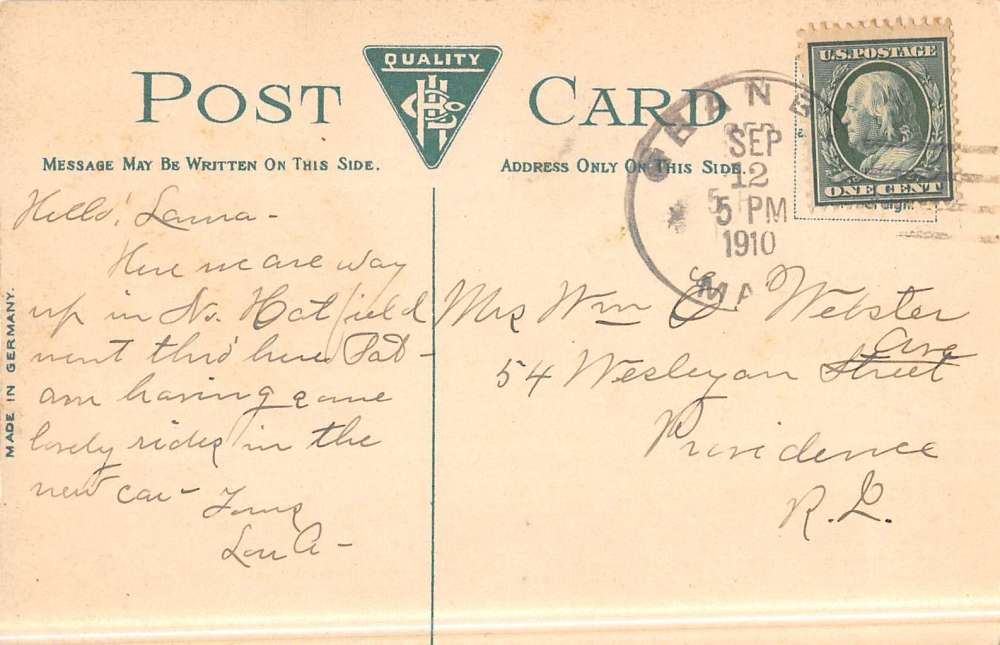 POST CARD
QUALITY
MESSAGE MAY BE WRITTEN ON THIS SIDE.
ADDRESS ONLY ON THIS SIDE.
U.S. POSTAGE
ONE CENT
SEP
12
5 PM
1910
MA
MADE IN GERMANY.
Hello! Laura -
Here we are way
up in No. Hatfield
went thro' here Sat -
am having some
lovely rides in the
new car - Yours
Lou A -
Mrs Wm E. Webster
54 Wesleyan Street Ave
Providence
R. I.